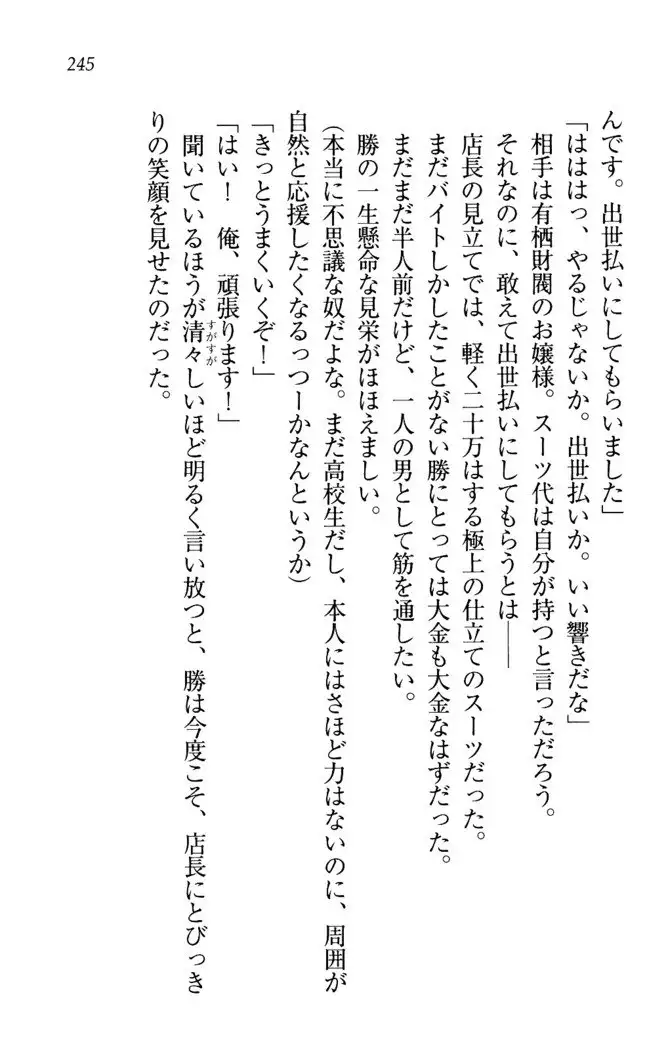 245
んです。出世払いにしてもらいました」
「はははっ、やるじゃないか。出世払いか。いい響きだな」
相手は有栖財閥のお嬢様。スーツ代は自分が持つと言っただろう。
それなのに、敢えて出世払いにしてもらうとは――
店長の見立てでは、軽く二十万はする極上の仕立てのスーツだった。
まだバイトしかしたことがない勝にとっては大金も大金なはずだった。
まだまだ半人前だけど、一人の男として筋を通したい。
勝の一生懸命な見栄がほほえましい。
(本当に不思議な奴だよな。まだ高校生だし、本人にはさほど力はないのに、周囲が
自然と応援したくなるっつーかなんというか)
「きっとうまくいくぞ!」
「はい! 俺、頑張ります!」
聞いているほうが清々しいほど明るく言い放つと、勝は今度こそ、店長にとびっき
すがすが
りの笑顔を見せたのだった。